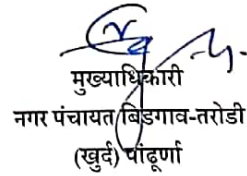 मुख्याधिकारी
नगर पंचायत बिडगाव-तरोडी
(खुर्द) पांढूर्णा